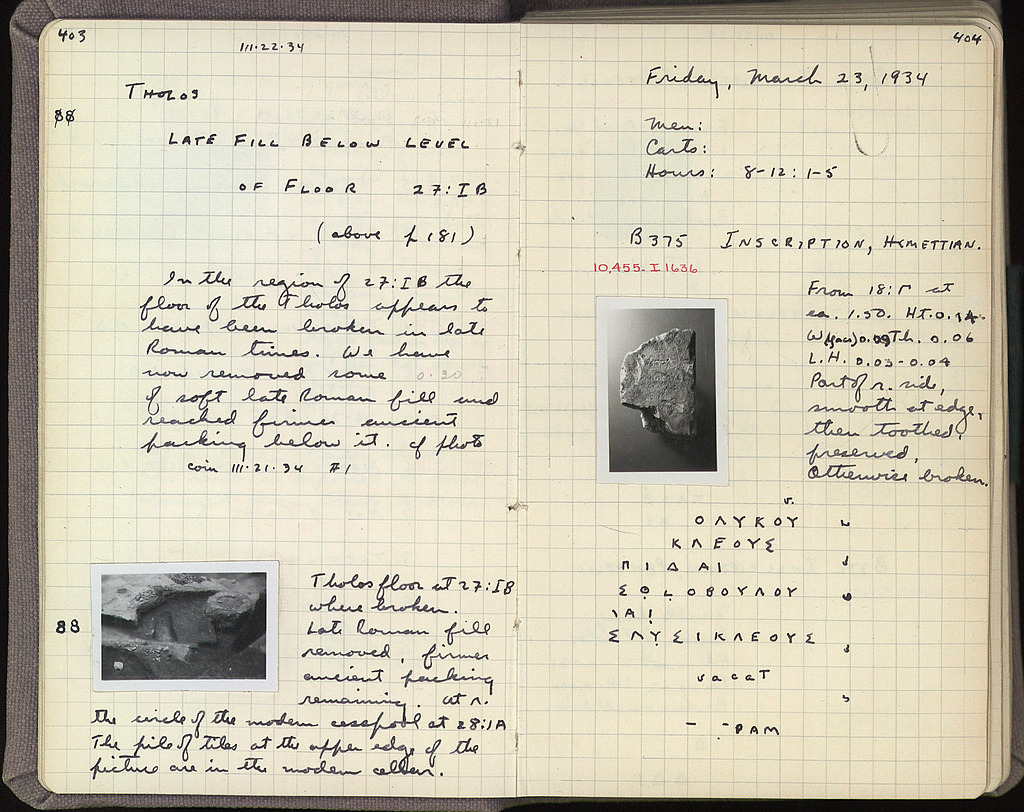 403
III·22·34
THOLOS
88
LATE FILL BELOW LEVEL
OF FLOOR 27:IB
(above p 181)
In the region of 27:IB the
floor of the Tholos appears to
have been broken in late
Roman times. We have
now removed some 0.30
of soft late Roman fill and
reached firmer ancient
packing below it. cf photo
coin III·21·34 #1
88
Tholos floor at 27:IB
where broken.
Late Roman fill
removed, firmer
ancient packing
remaining. At r.
the circle of the modern cesspool at 28:IA
The pile of tiles at the upper edge of the
picture are in the modern cellar.
404
Friday, March 23, 1934
Men:
Carts:
Hours: 8-12: 1-5
B375 INSCRIPTION, HYMETTIAN.
10,455-I 1636
From 18:Γ at
ca. 1.50. HT. 0.14
W (face) 0.09 Th. 0.06
L.H. 0.03-0.04
Part of r. side,
smooth at edge,
then toothed,
preserved,
Otherwise broken.
v.
ΟΛΥΚΟΥ
ΚΛΕΟΥΣ
ΠΙΔΑΙ
ΣΘΛΟΒΟΥΛΟΥ
ΙΑΙ
ΣΛΥΣΙΚΛΕΟΥΣ
vacat
ΡΑΜ